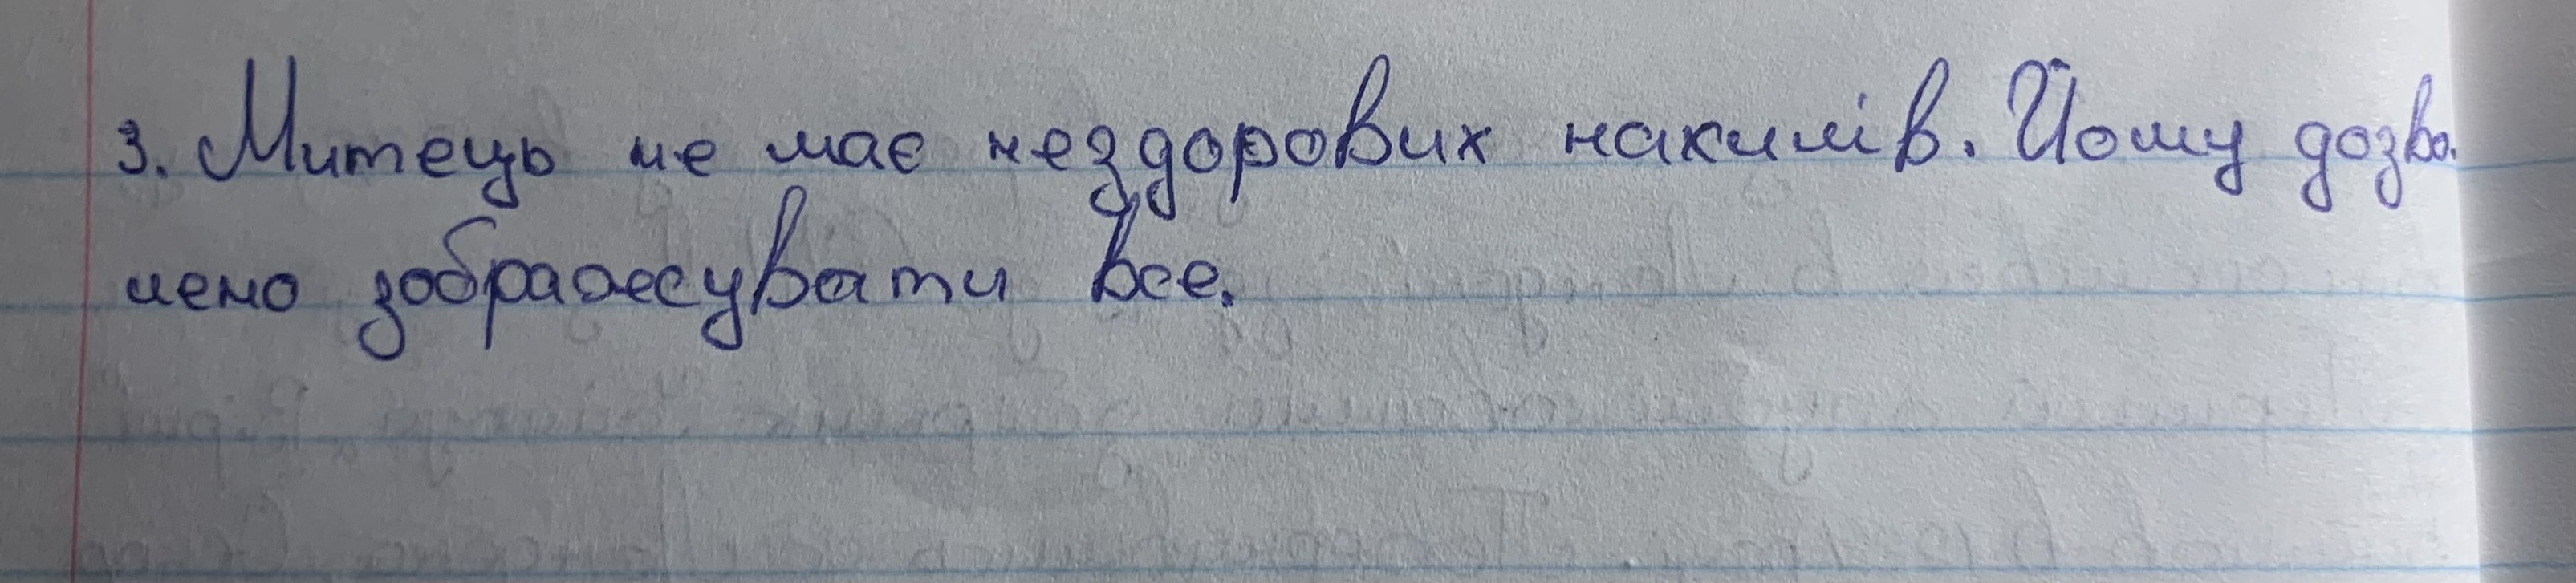 3. Митець не має нездорових нахилів. Йому дозво-
лено зображувати все.